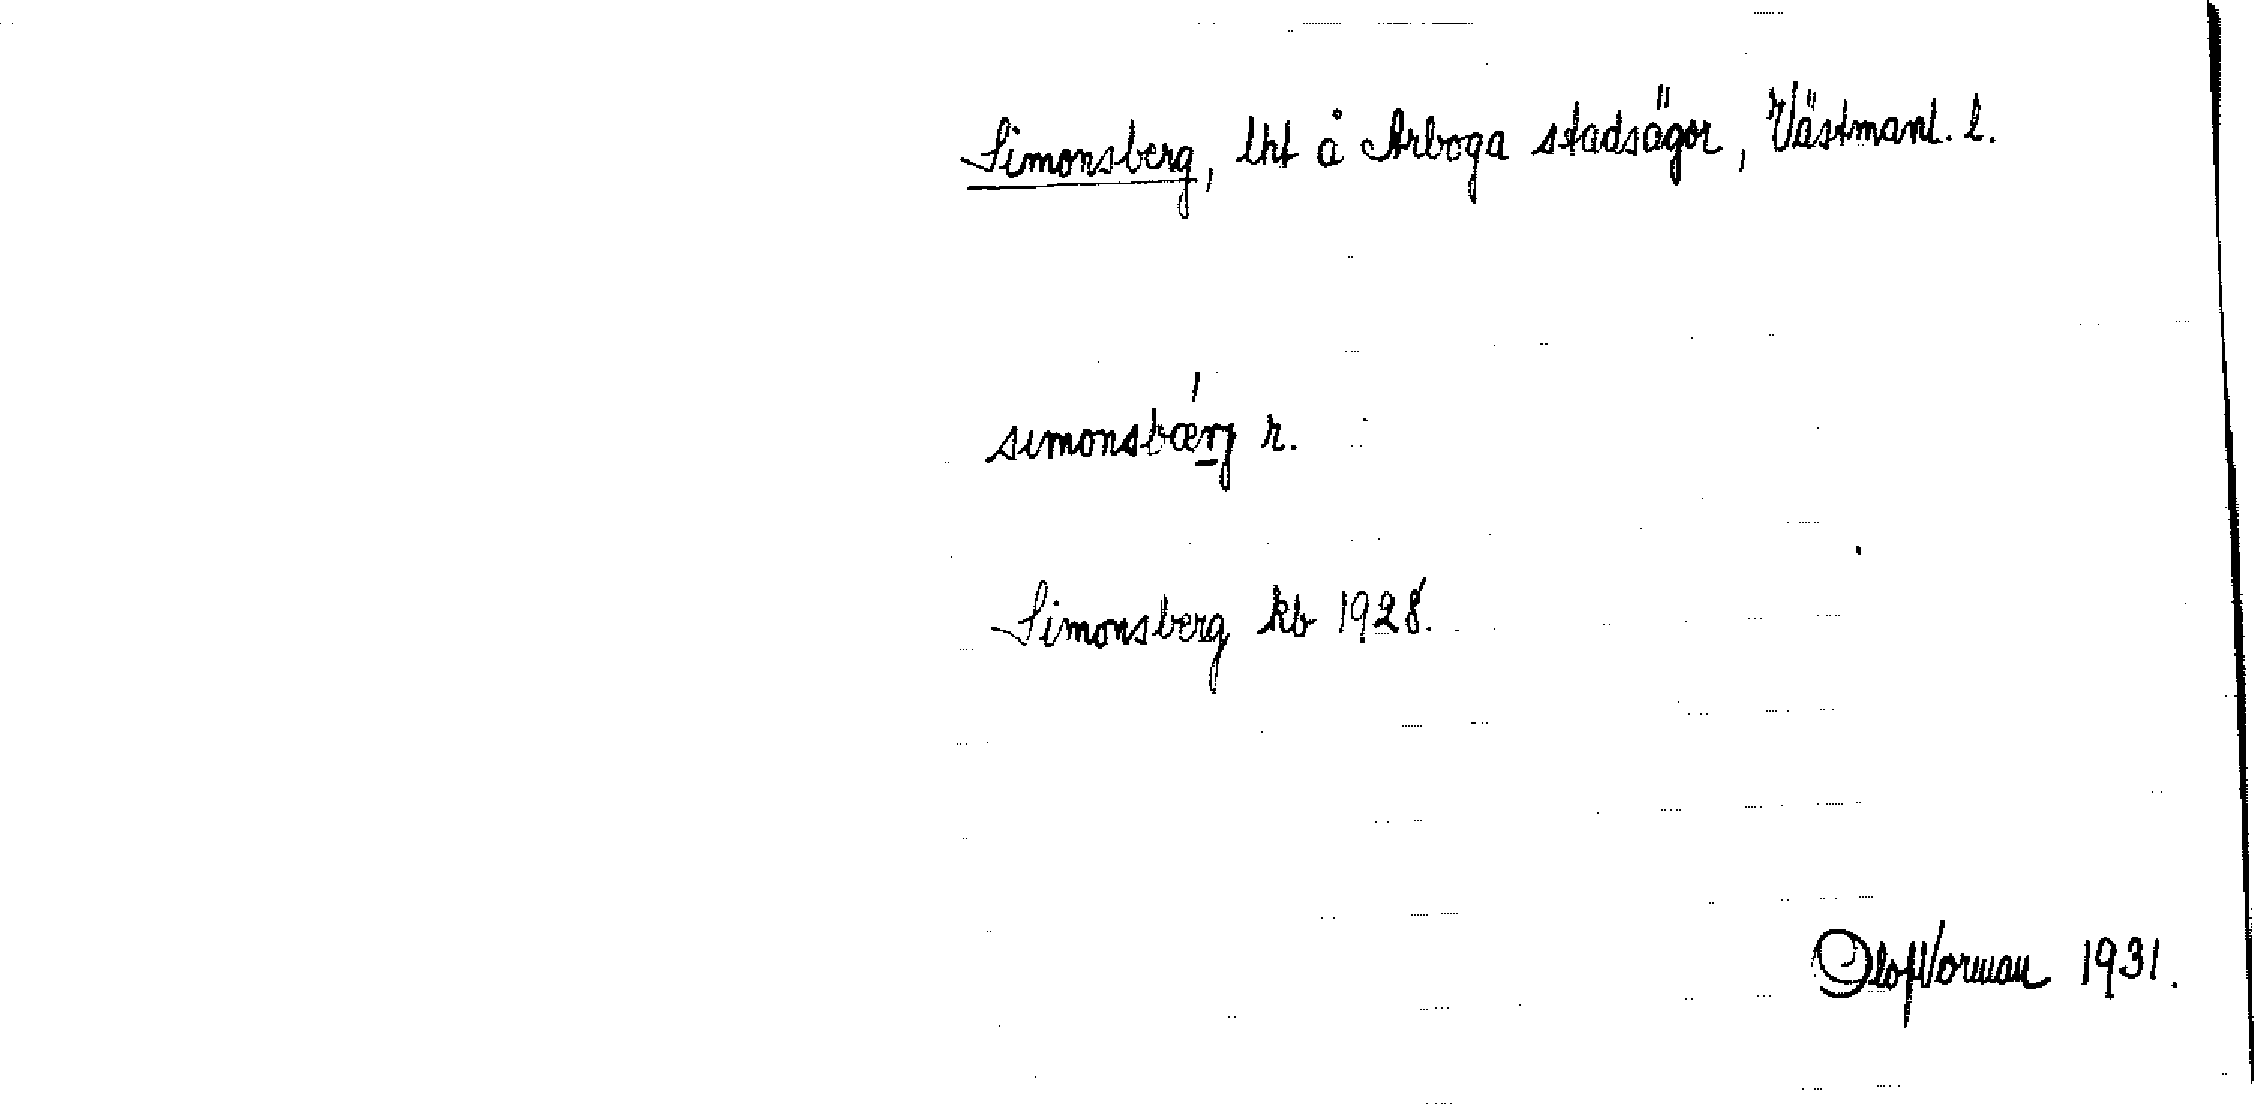 Simonsberg, lht å Arboga stadsägor, Västmanl. l.
simonsbærj r.
Simonsberg kb 1928.
Olof Norman 1931.